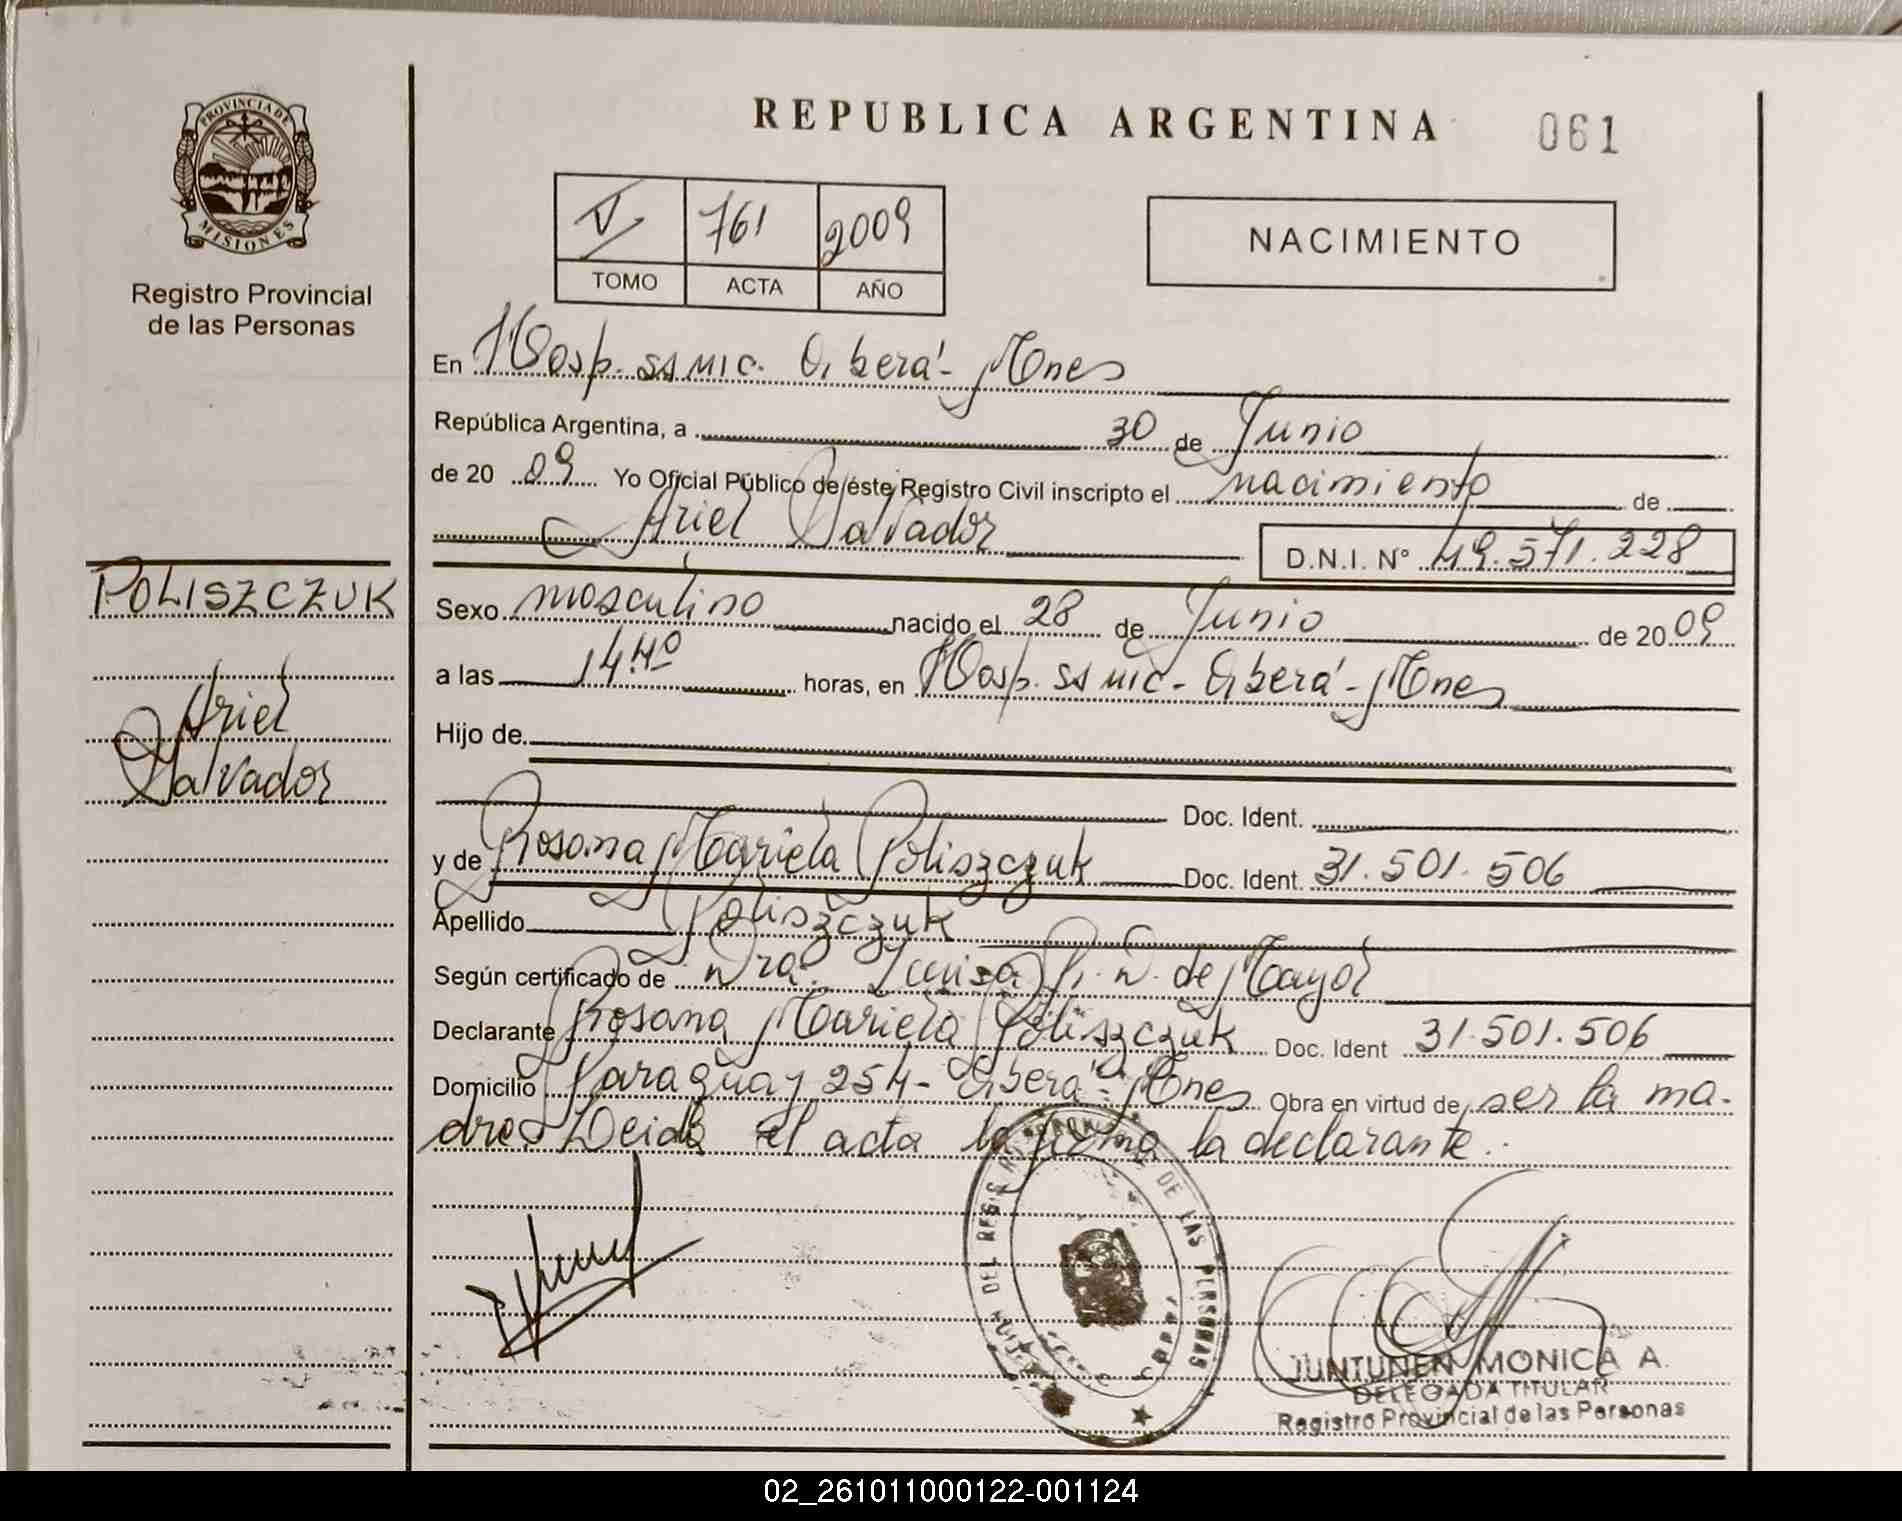 PROVINCIA DE
MISIONES
Registro Provincial
de las Personas
POLISZCZUK
Ariel
Salvador
REPUBLICA ARGENTINA 061
V 761 2009
TOMO ACTA AÑO
NACIMIENTO
En Hosp. SSMIC. Oberá - Mnes
República Argentina, a 30 de Junio
de 20 09 Yo Oficial Público de éste Registro Civil inscripto el nacimiento de
Ariel Salvador D.N.I. N° 49.571.228
Sexo masculino nacido el 28 de Junio de 20 09
a las 14.40 horas, en Hosp. SSMIC - Oberá - Mnes
Hijo de
Doc. Ident.
y de Rosana Mariela Poliszczuk Doc. Ident. 31.501.506
Apellido Poliszczuk
Según certificado de Dra. Luisa de Mayol
Declarante Rosana Mariela Poliszczuk Doc. Ident 31.501.506
Domicilio Paraguay 254 - Oberá - Mnes Obra en virtud de ser la ma-
dre. Leida el acta la firma la declarante.
DEL REGISTRO DE LAS PERSONAS
JUNTUNEN MONICA A.
DELEGADA TITULAR
Registro Provincial de las Personas
02_261011000122-001124